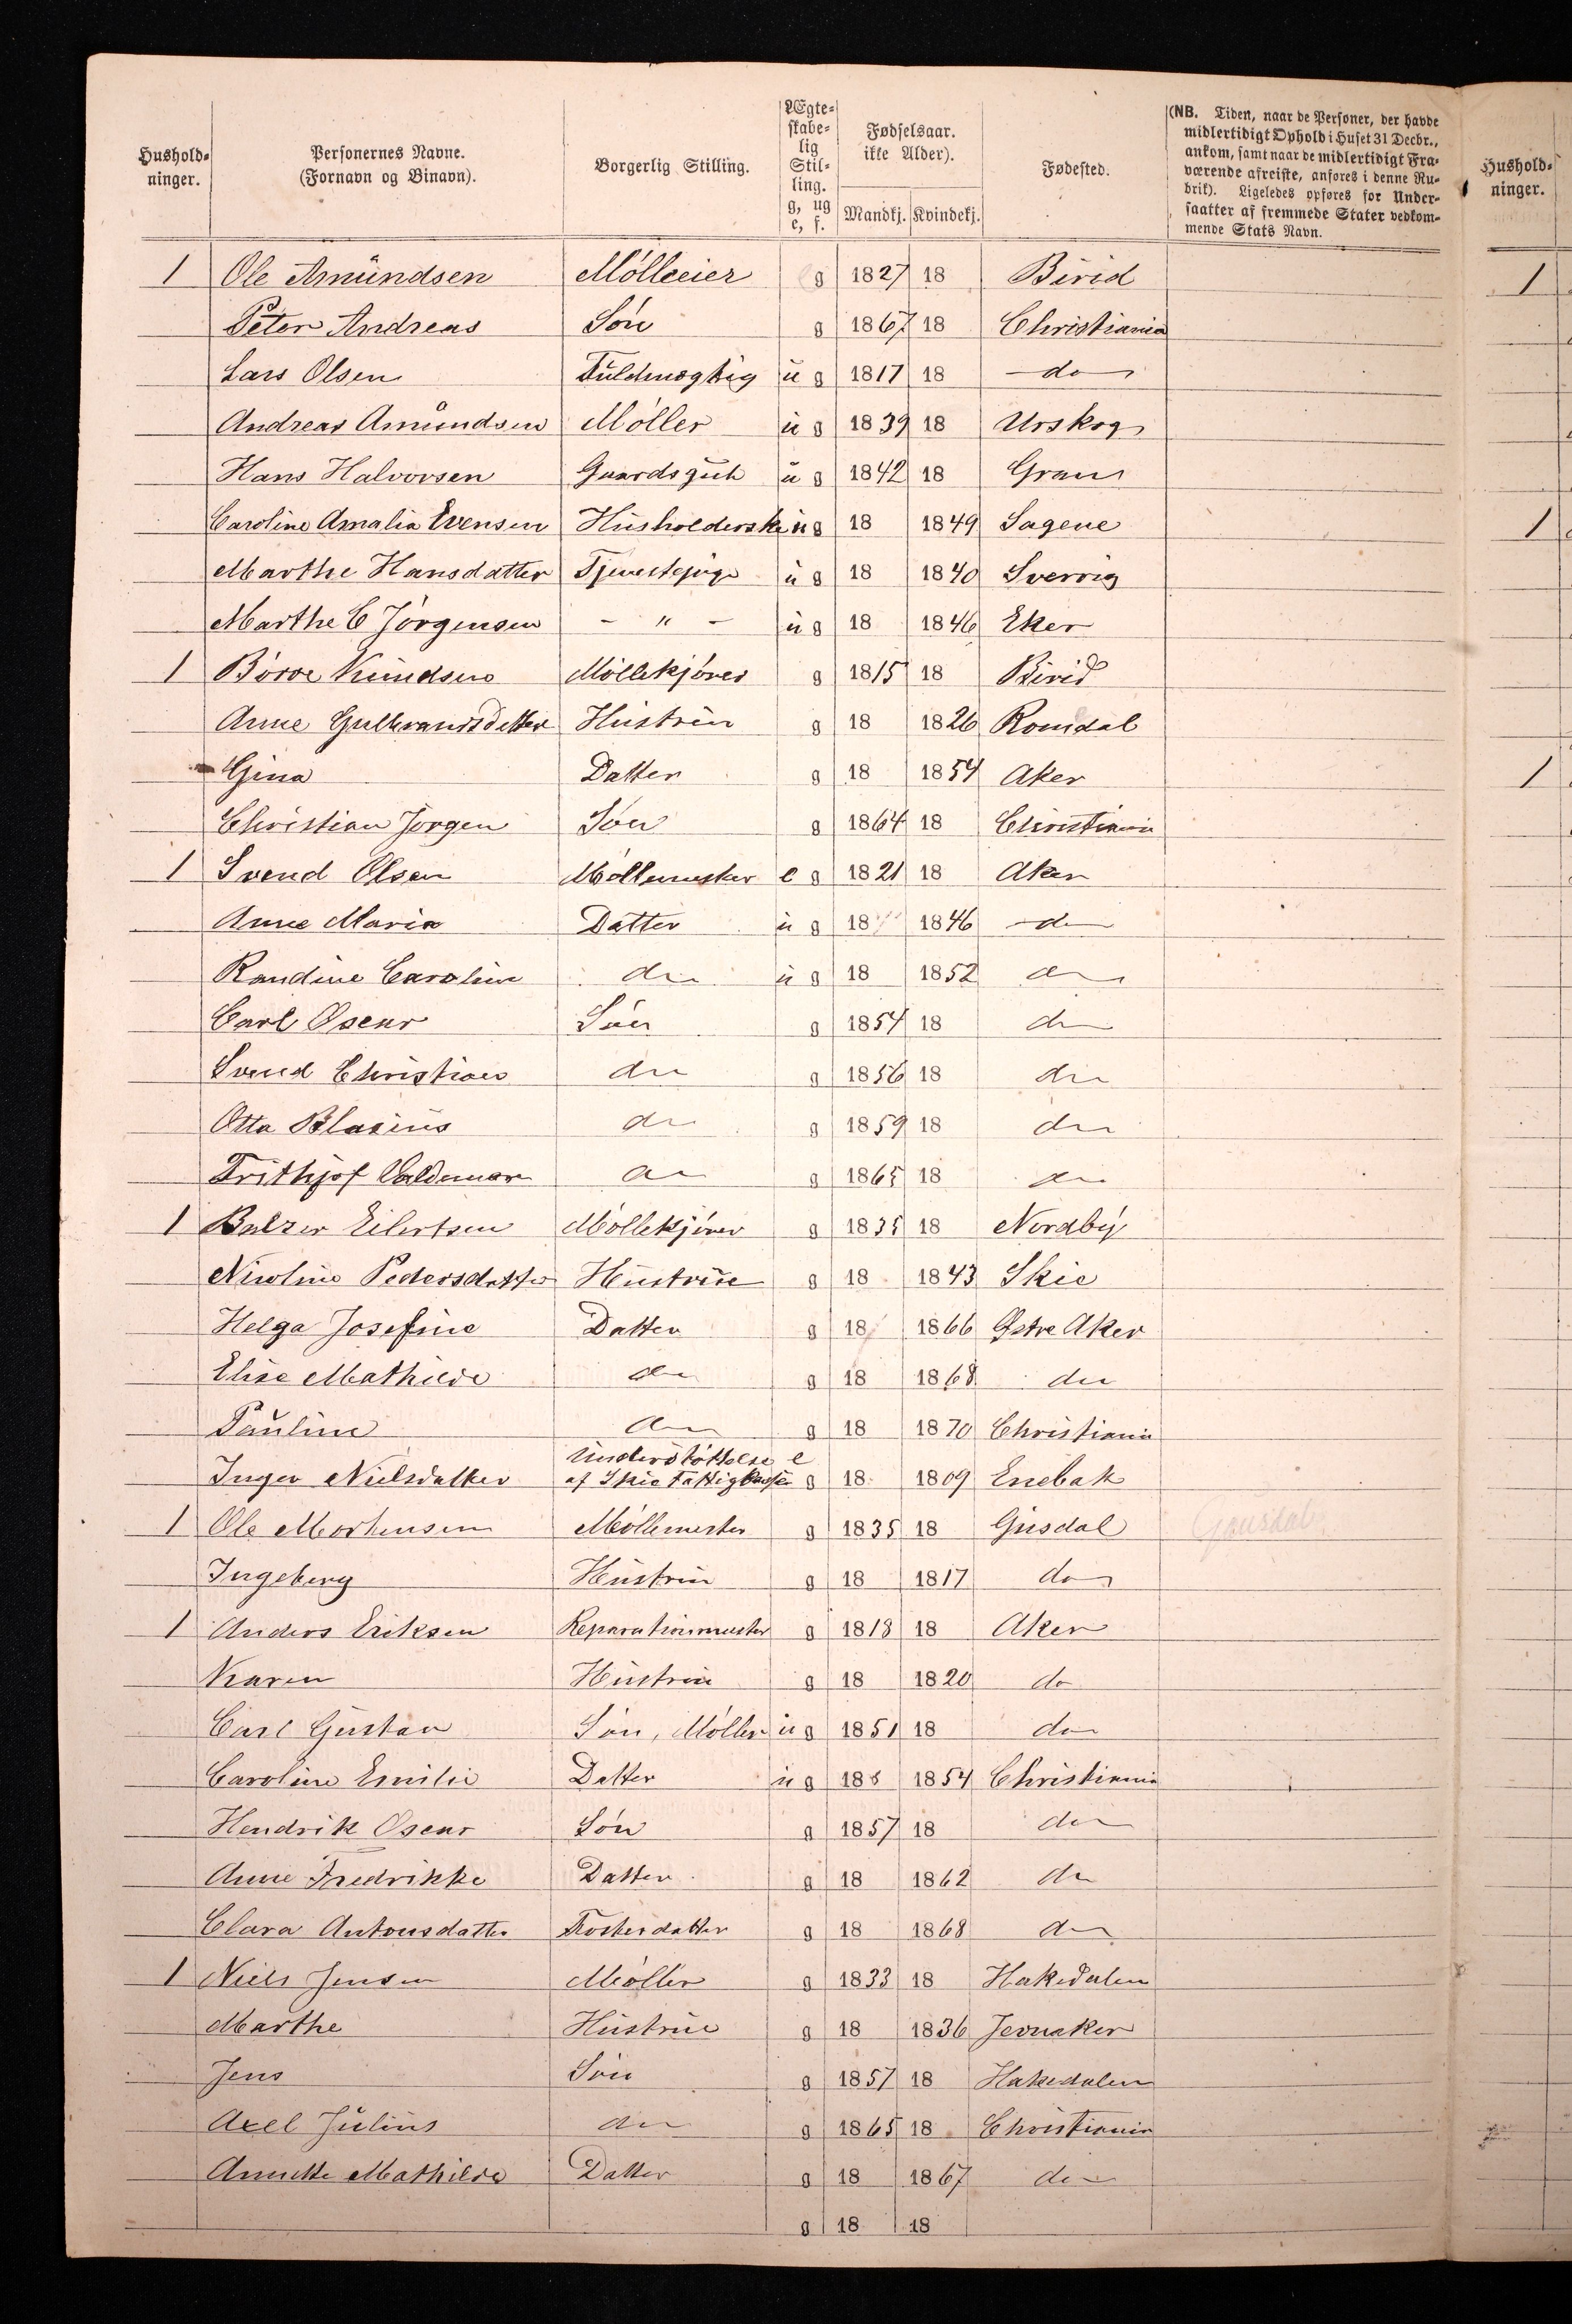 Hushold-
ninger.
Personernes Navne.
(Fornavn og Binavn).
Borgerlig Stilling.
Ægte-
skabe-
lig
Stil-
ling.
g, ug
e, f.
Fødselsaar.
ikke Alder).
Mandkj. Kvindekj.
Fødested.
(NB. Tiden, naar de Personer, der havde
midlertidigt Ophold i Huset 31 Decbr.,
ankom, samt naar de midlertidigt Fra-
værende afreiste, anføres i denne Ru-
brik). Ligeledes opføres for Under-
saatter af fremmede Stater vedkom-
mende Stats Navn.
Hushold-
ninger.
1 Ole Amundsen Mölleeier g 1827 18 Birid 1
Peter Andreas Sön g 1867 18 Christiania
Lars Olsen Fuldmægtig u g 1817 18 do
Andreas Amundsen Möller u g 1839 18 Urskog
Hans Halvorsen Gaardsgut u g 1842 18 Gran
Caroline Amalia Evensen Husholderske u g 18 1849 Sagene 1
Marthe Hansdatter Tjenestepige u g 18 1840 Sverrig
Marthe C Jörgensen - " - u g 18 1846 Eker
1 Börre Knudsen Möllekjörer g 1815 18 Birid
Anne Gulbrandsdatter Hustru g 18 1826 Romdal
Gina Datter g 18 1854 Aker 1
Christian Jörgen Sön g 1864 18 Christiania
1 Svend Olsen Möllemester e g 1821 18 Aker
Anne Maria Datter u g 18 1846 do
Randine Caroline do u g 18 1852 do
Carl Oscar Sön g 1854 18 do
Svend Christian do g 1856 18 do
Otto Blasius do g 1859 18 do
Frithjof Valdemar do g 1865 18 do
1 Balzer Eilertsen Möllekjörer g 1835 18 Nordby
Nicoline Pedersdatter Hustrue g 18 1843 Skie
Helga Josefine Datter g 18 1866 Østre Aker
Elise Mathilde do g 18 1868 do
Pauline do g 18 1870 Christiania
Understöttelse e
Inger Nielsdatter af Skie Fattigkasse g 18 1809 Enebak
1 Ole Mortensen Möllemester g 1835 18 Gusdal Gausdal
Ingeborg Hustrue g 18 1817 do
1 Anders Eriksen Reparationsmester g 1818 18 Aker
Karen Hustrue g 18 1820 do
Carl Gustav Sön, Möller u g 1851 18 do
Caroline Emilie Datter u g 18 1854 Christiania
Hendrik Oscar Sön g 1857 18 do
Anne Fredrikke Datter g 18 1862 do
Clara Antonsdatter Fosterdatter g 18 1868 do
1 Niels Jensen Möller g 1833 18 Hakedalen
Marthe Hustrue g 18 1836 Jevnaker
Jens Sön g 1857 18 Hakedalen
Axel Julius do g 1865 18 Christiania
Annette Mathilde Datter g 18 1867 do
g 18 18